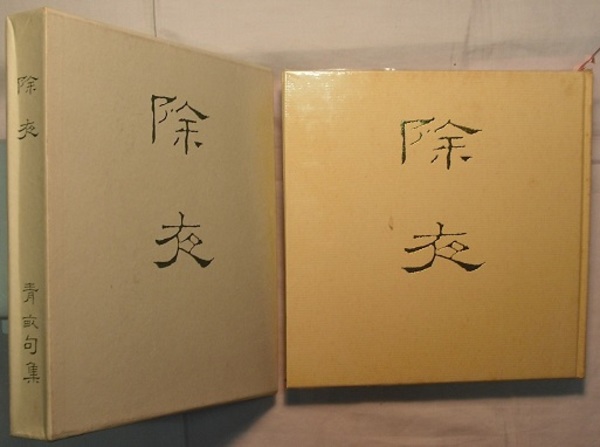 除夜
青畝句集
除夜
除夜